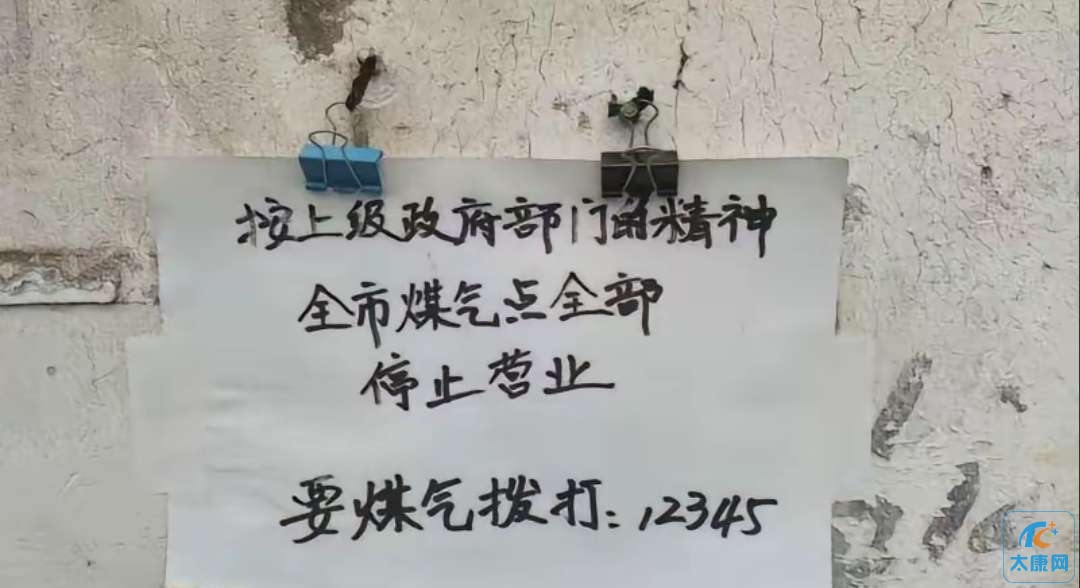 按上级政府部门的精神
全市煤气点全部
停止营业
要煤气拨打：12345
太康网